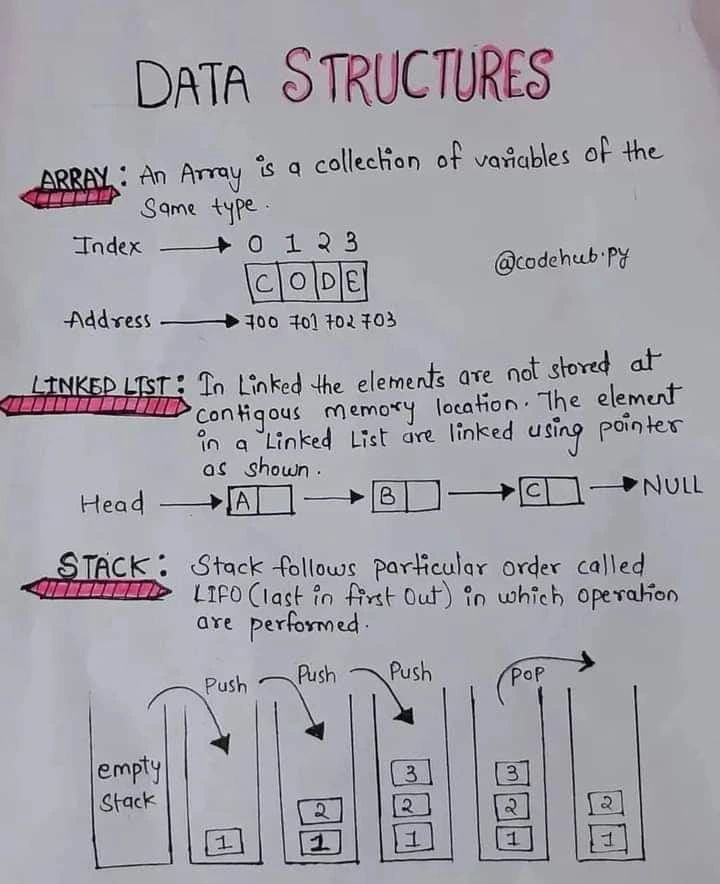 DATA STRUCTURES
ARRAY : An Array is a collection of variables of the
Same type.
Index 0 1 2 3
C O D E
@codehub.py
Address 700 701 702 703
LINKED LIST : In Linked the elements are not stored at
contigous memory location. The element
in a Linked List are linked using pointer
as shown.
Head A B C NULL
STACK : Stack follows particular order called
LIFO (last in first Out) in which operation
are performed.
Push Push Push POP
empty
Stack
3 3
2 2 2 2
1 1 1 1 1